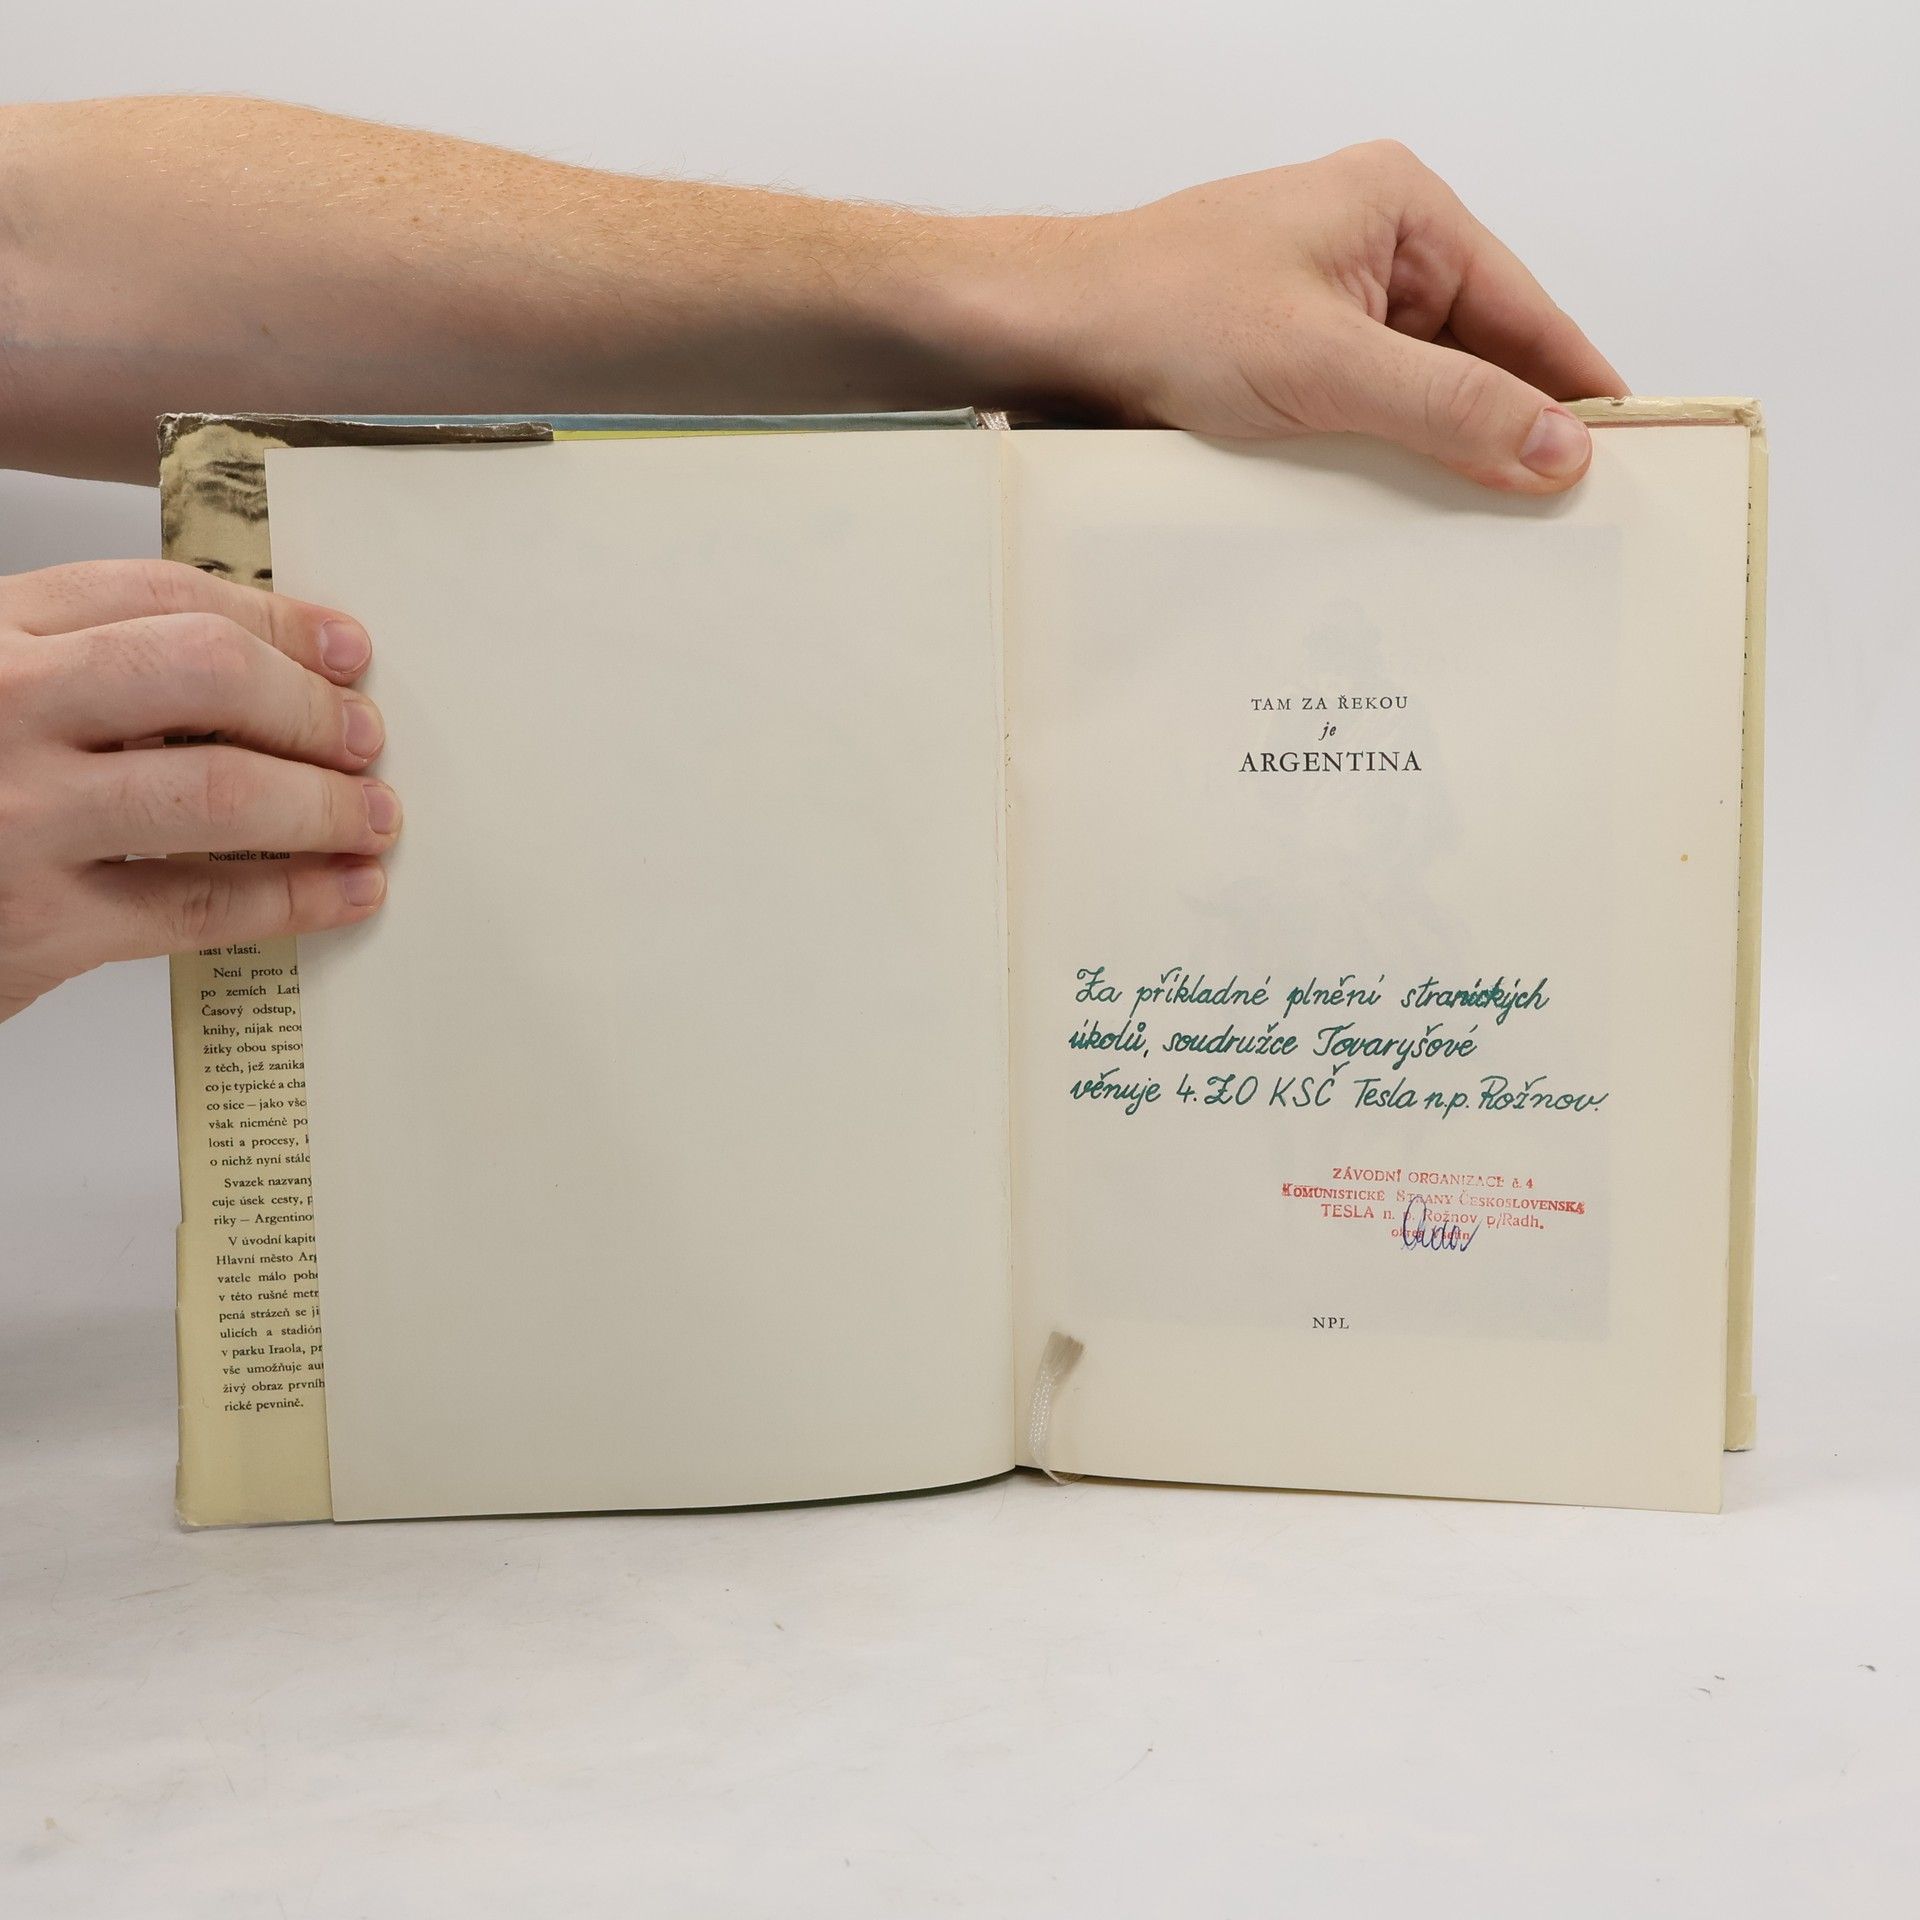 Nositele Řádu
naší vlasti.
Není proto d
po zemích Lati
Časový odstup,
knihy, nijak neos
žitky obou spiso
z těch, jež zanika
co je typické a cha
co sice – jako vše
však nicméně po
losti a procesy, k
o nichž nyní stále
Svazek nazvaný
cuje úsek cesty, p
riky – Argentino
V úvodní kapito
Hlavní město Arg
vatele málo poh
v této rušné metr
pená strázeň se ji
ulicích a stadión
v parku Iraola, pr
vše umožňuje au
živý obraz prvníh
rické pevnině.
TAM ZA ŘEKOU
je
ARGENTINA
Za příkladné plnění stranických
úkolů, soudružce Tovaryšové
věnuje 4. ZO KSČ Tesla n.p. Rožnov.
ZÁVODNÍ ORGANIZACE č. 4
KOMUNISTICKÉ STRANY ČESKOSLOVENSKA
TESLA n. p. Rožnov p/Radh.
okres Vsetín
NPL